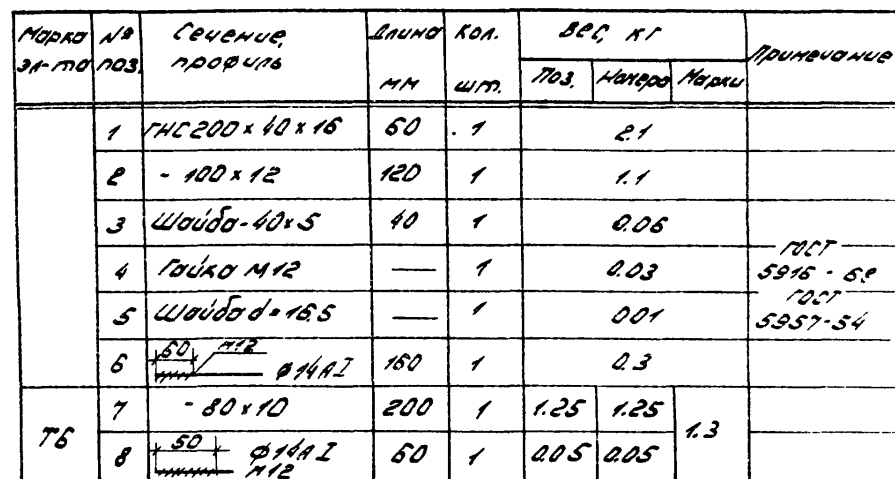 Марка эл-та № поз. Сечение, профиль Длина мм Кол. шт. Вес, кг Примечание
Поз. Номера Марки
1 ГНС 200 x 40 x 16 60 1 2.1
2 - 100 x 12 120 1 1.1
3 Шайба - 40 x 5 40 1 0.06
4 Гайка М12 — 1 0.03 ГОСТ 5916 - 62
5 Шайба d = 16.5 — 1 0.01 ГОСТ 5957-54
6 60 М12 ф14АI 160 1 0.3
Т6 7 - 80 x 10 200 1 1.25 1.25 1.3
8 50 ф14АI М12 60 1 0.05 0.05